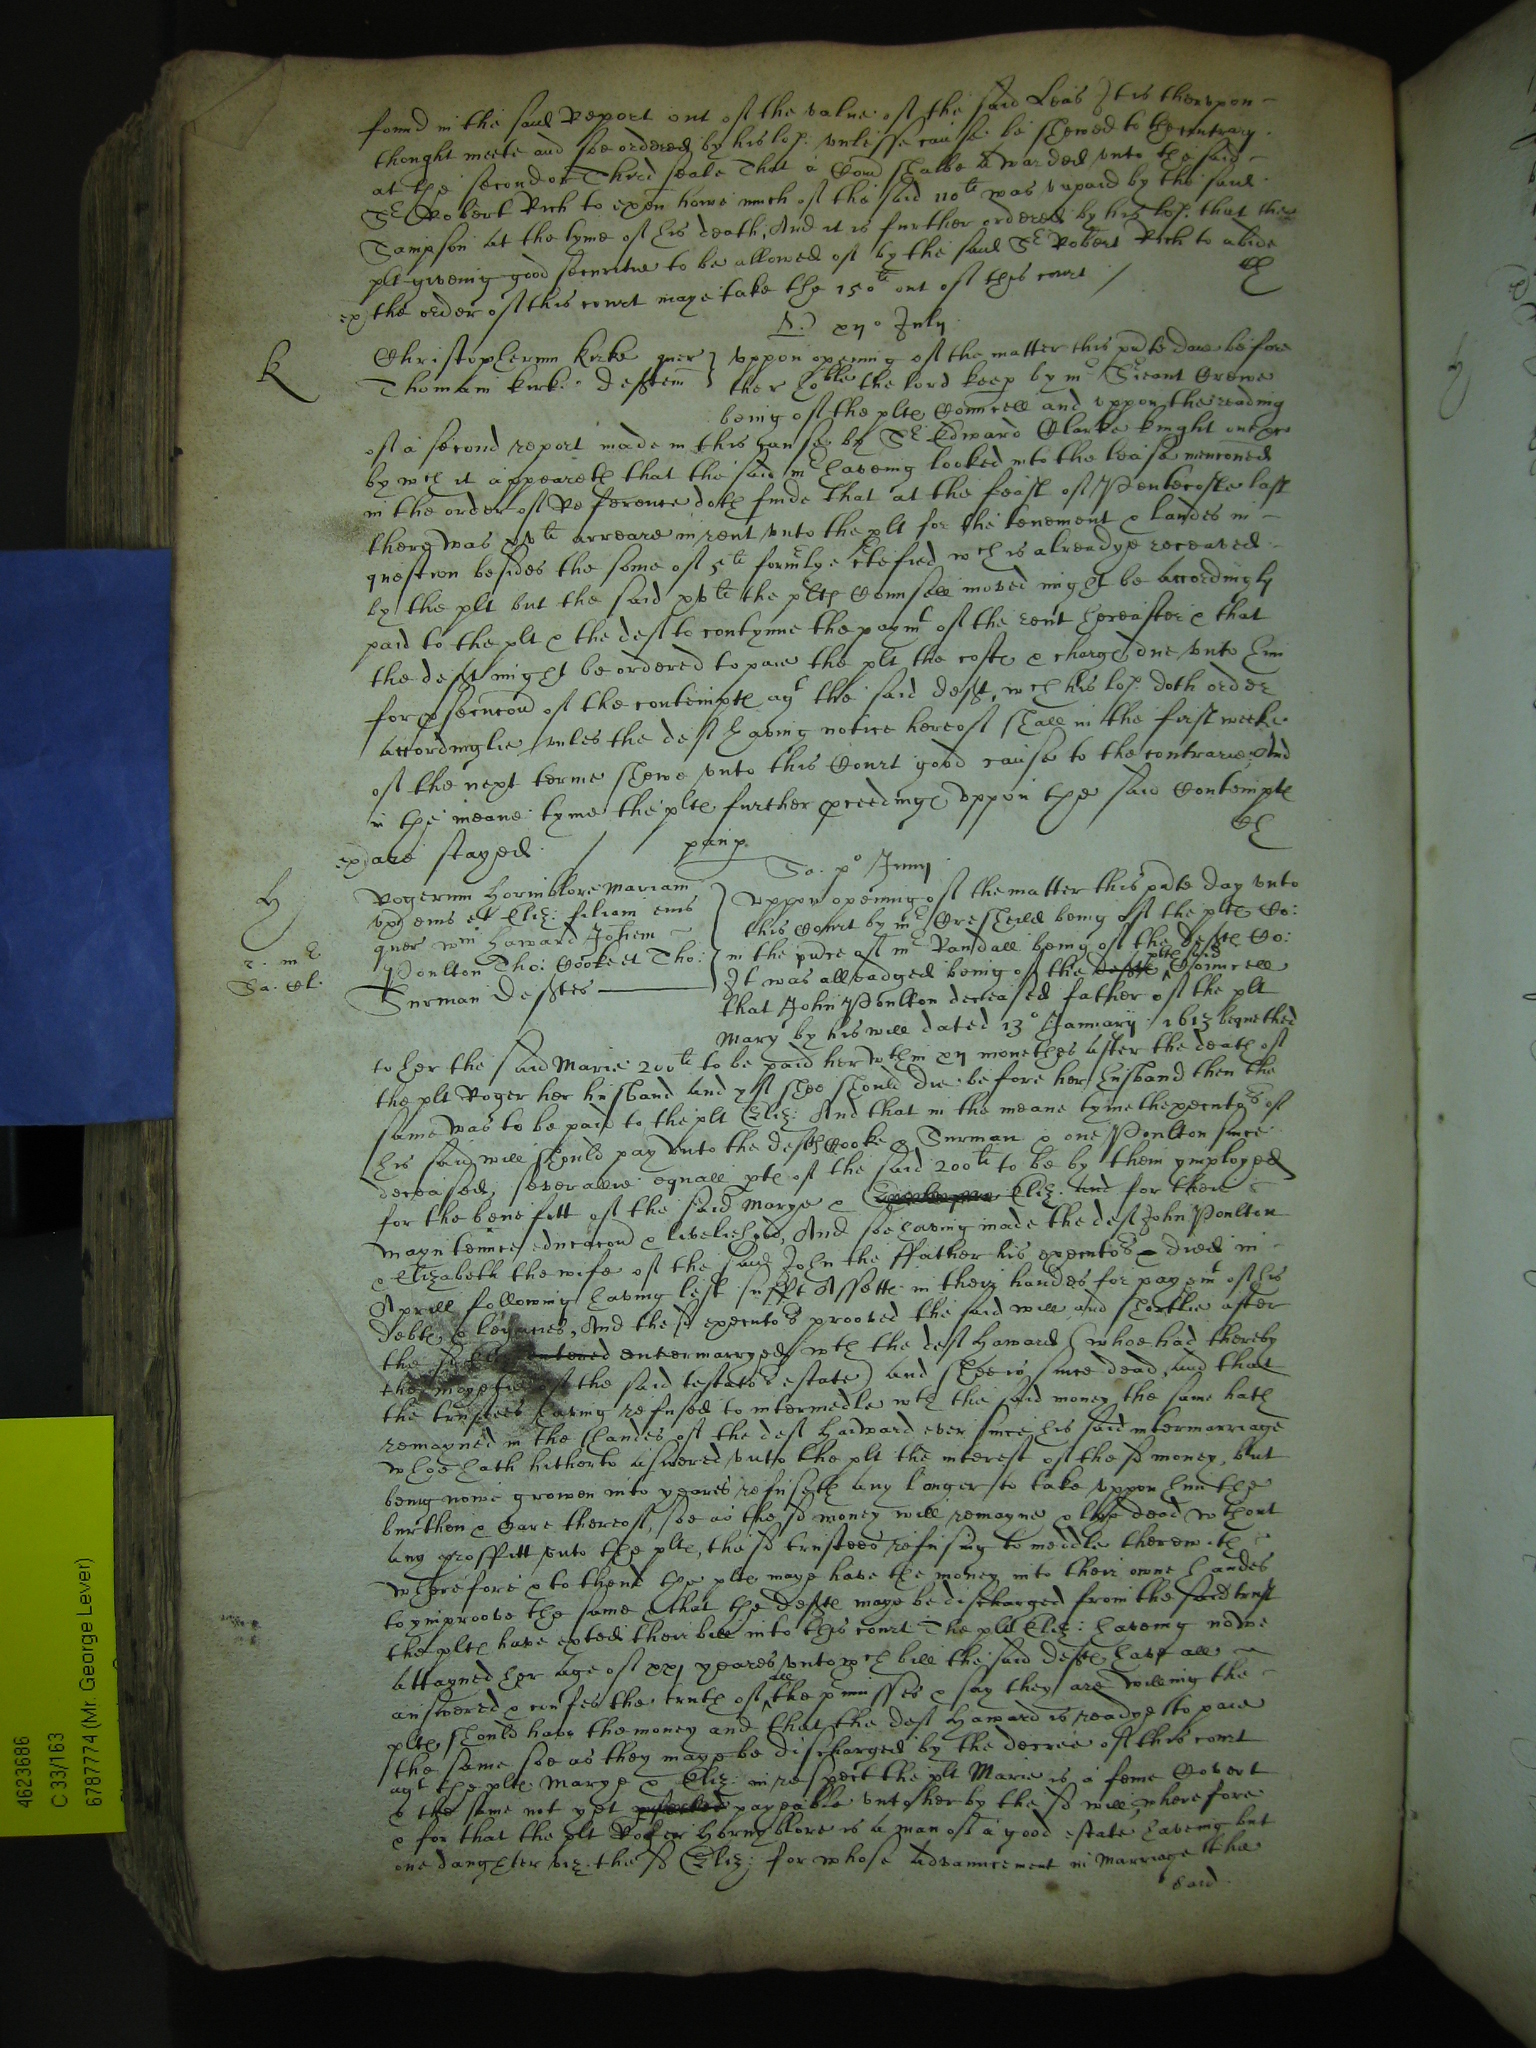 found in the said Report out of the value of the said Leas It is therevpon
thought meete and soe ordered by his lop: vnlesse cause be shewed to the contrary
at the second or Third seale That a Com shalbe Awarded vnto the said
Sr Robert Rich to exam howe much of the said 110li was vnpaid by the said
Sampson at the tyme of his death, And it is further ordered by his lop. that the
plt giveing good securitie to be allowed of by the said Sr Robert Rich to abide
ex the order of this court maye take the 150li out of this court /
xij° July
K
Christopherum Kirke quer } Vppon opening of the matter this pnte daie before
Thomam Kirke deftem } the r: hoble the lord keep by mr Sricant Crewe
being of the pltes Councell and vppon the reading
of a second report made in this cause by Sr Edward Clarke knight one &c
by wch it appeareth that the said mr haveing looked into the lease menconed
in the order of Reference doth finde that at the feast of Pentecoste last
there was xvli arreare in rent vnto the plt for the tenement & landes in
question besides the some of 5li formrly certefied wch is alreadye receaved
by the plt but the said xvli the pltes Counsell moved might be accordingly
paid to the plt & the deft to contynue the paymt of the rent hereafter & that
the deft might be ordered to paie the plt the costes & charges due vnto him
for psecucon of the contemptes agt the said deft, wch his lop. doth order
accordinglie vnles the deft having notice hereof shall in the first weeke
of the next terme shewe vnto this Court good cause to the contrarie And
in the meane tyme the pltes further pceedinges vppon the said Contemptes
ex are stayed /
Sa. p° Junij
H
Rogerum Hornblore Mariam } Vppon opening of the matter this pnte day vnto
vxr eius et Eliz: filiam eius } this Court by mr Cresheild being of the pltes Co:
quer Wm Haward Johem } in the pnce of mr Randall being of the deftes Co:
Poulton Tho: Cooke et Tho: } It was alleadged being of the deftes pltes said Councell
Surman deftes } that John Poulton deceased father of the plt
Mary by his will dated 13° January 1613 bequethed
to her the said Marie 200li to be paid her wthin xij monethes after the death of
the plt Roger her husband and yf shee should die before her husband then the
same was to be paid to the plt Eliz: And that in the meane tyme the executors of
his said will should pay vnto the deftes Cooke & Surman & one Poulton since
deceased, severallie equall ptes of the said 200li to be by them ymployed
for the benefitt of the said Marye & Eliz: and for their
mayntennce educacon & liveliehood, And soe having made the deft John Poulton
& Elizabeth the wife of the said John the ffather his executors & died in
Aprill following having left sufft Assettes in their handes for paymt of his
debtes & legacies, And the sd executors prooved the said will and shortlie after
the sd Eliz: entered entermarryed wth the deft Haward (whoe had thereby
the of the said testators estate) and shee is since dead, And that
the trustees having refused to intermedle wth the said money the same hath
remayned in the handes of the deft Haiward ever since his said intermarriage
whoe hath hitherto aswered vnto the plt the interest of the sd money, but
being nowe growen into yeares refuseth any longer to take vppon him the
burthen & Care thereof, soe as the sd money will remayne & lye dead wthout
any proffitt vnto the pltes, the sd trustees refusing to meddle therewith
Wherefore & to thend the pltes maye have the money into their owne handes
to ymproove the same & that the deftes maye be discharged from the said trust
the pltes have exted their bill into this court The plt Eliz: haveing nowe
attayned her age of xxj yeares vnto wch bill the said deftes have all
answered & confes the truth of all the pmisses & say they are willing the
pltes should have the money and that the deft Haward is readye to paie
the same soe as they maye be discharged by the decree of this court
agt the pltes Marye & Eliz: in respect the plt Marie is a feme Covert
& the same not yet payeable vnto her by the sd will, wherefore
& for that the plt Roger Hornyblore is a man of a good estate haveing but
one daughter viz. the sd Eliz: for whose advauncement in Marriage the
said
4623686
C 33/163
6787774 (Mr. George Lever)